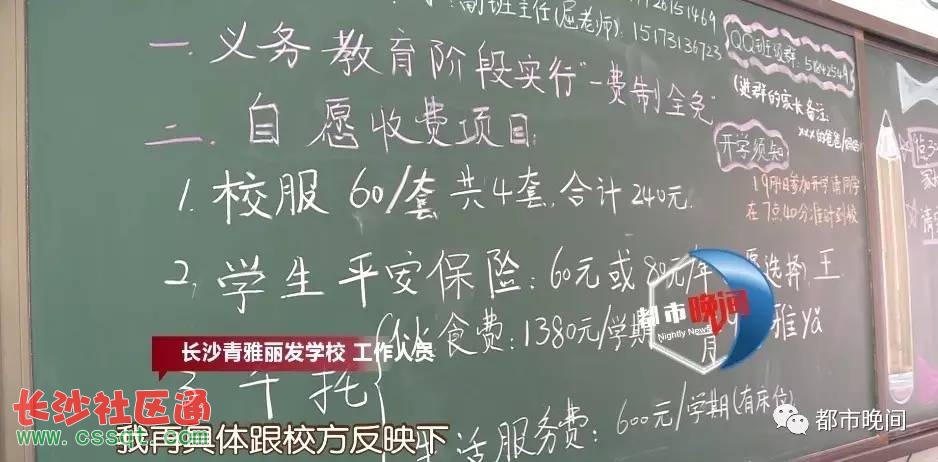 副班主任(屈老师): 15173136723
一. 义务教育阶段实行"一费制全免"
二. 自愿收费项目
1. 校服 60/套 共4套, 合计240元.
2. 学生平安保险: 60元或80元/年 选择
伙食费: 1380元/学期
午托
生活服务费: 600元/学期(有床位)
王
雅yǎ
QQ班级群:
(进群的家长备注:
xxx的爸爸/妈妈)
开学须知
在7点40分准时到校
都市晚间
Nightly News
长沙青雅丽发学校 工作人员
长沙社区通
www.cssqt.com
我再具体跟校方反映下
都市晚间